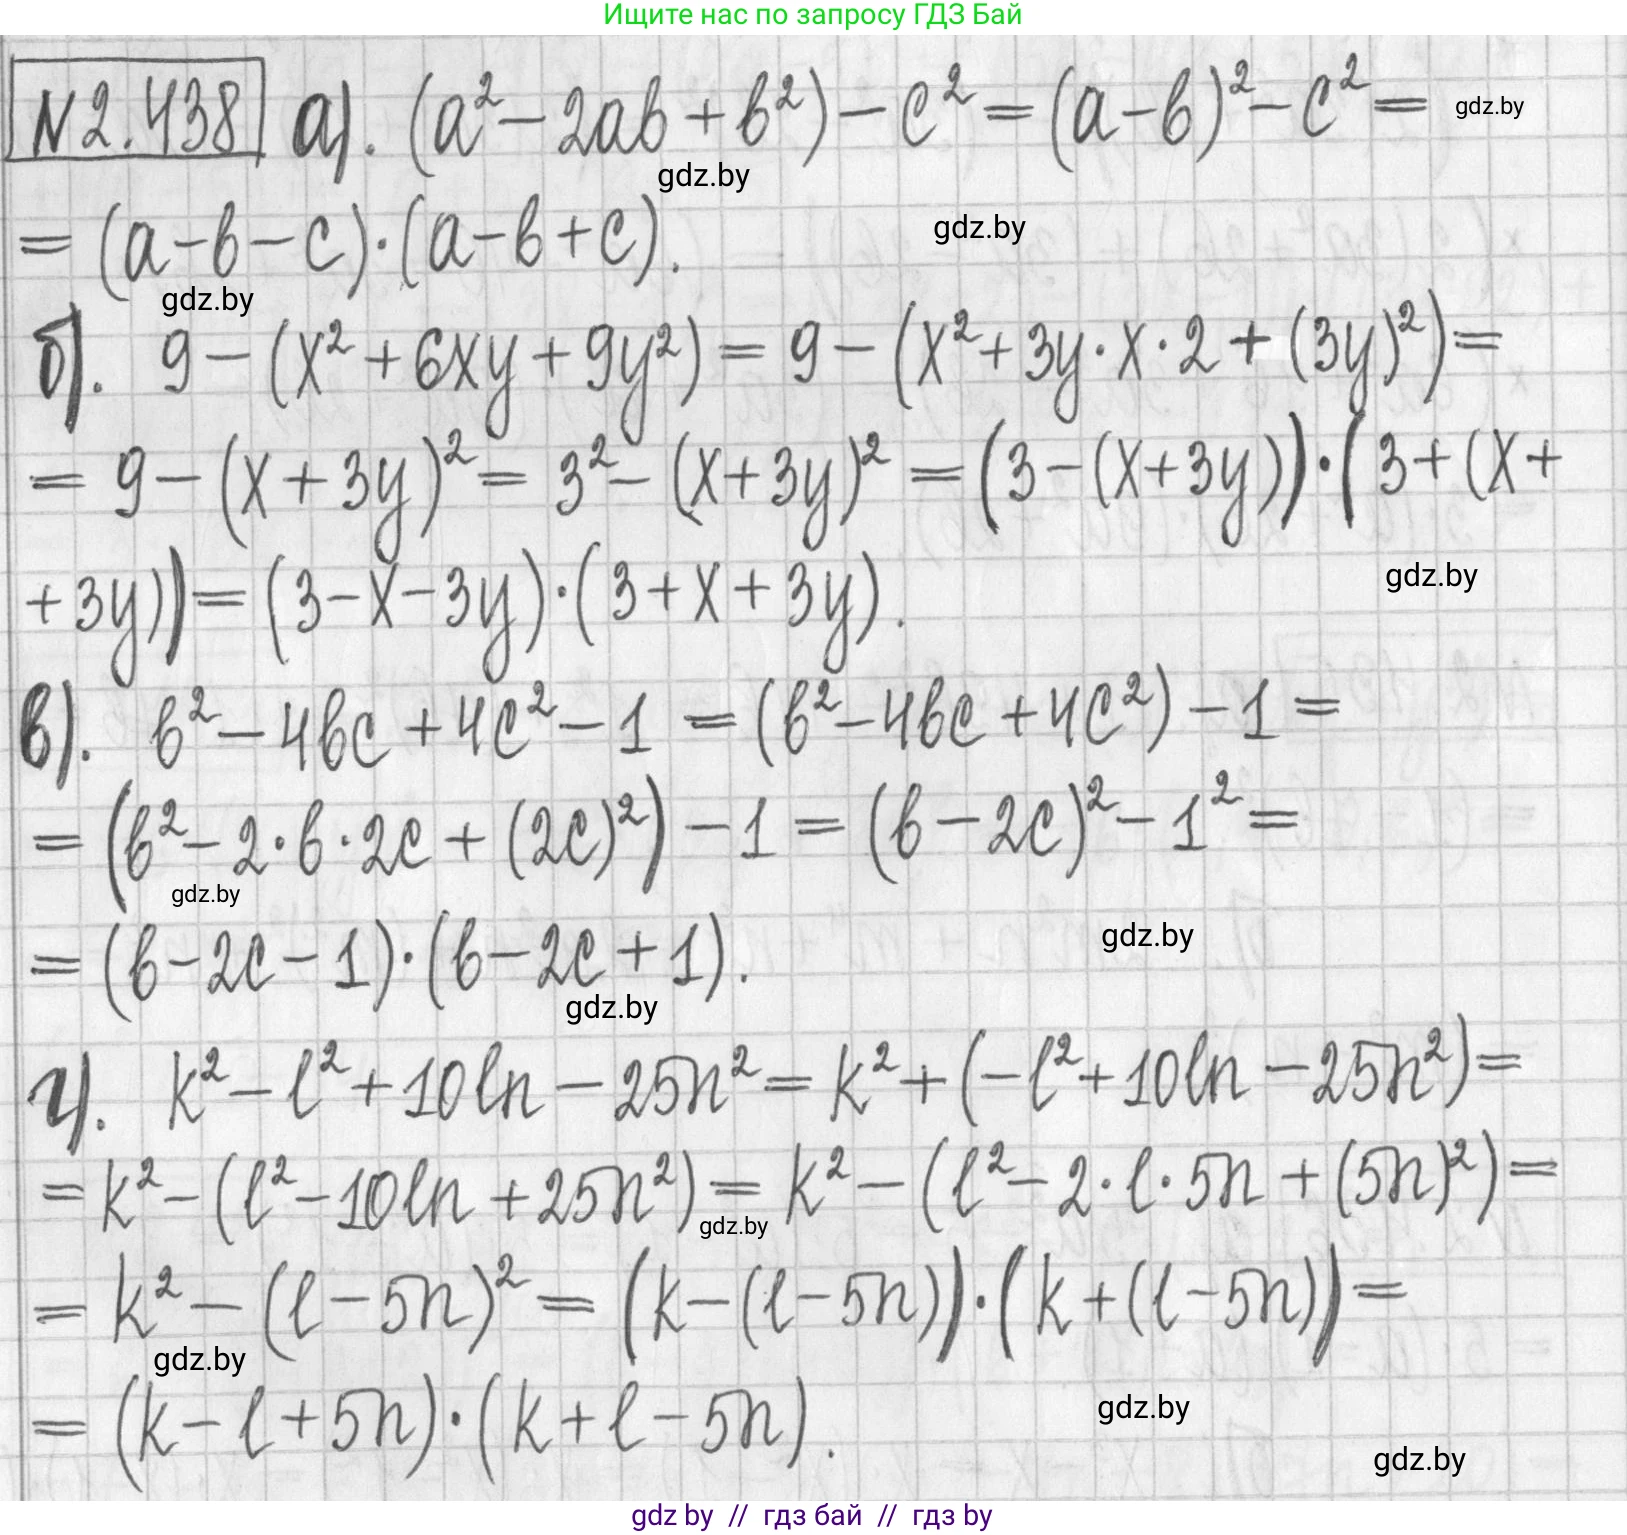 Ищите нас по запросу ГДЗ Бай
N2.438 а). (a² - 2ab + b²) - c² = (a - b)² - c² = gdz.by
gdz.by
= (a - b - c) · (a - b + c). gdz.by
gdz.by
б). 9 - (x² + 6xy + 9y²) = 9 - (x² + 3y · x · 2 + (3y)²) =
= 9 - (x + 3y)² = 3² - (x + 3y)² = (3 - (x + 3y)) · (3 + (x +
+ 3y)) = (3 - x - 3y) · (3 + x + 3y). gdz.by
в). b² - 4bc + 4c² - 1 = (b² - 4bc + 4c²) - 1 =
= (b² - 2 · b · 2c + (2c)²) - 1 = (b - 2c)² - 1² =
gdz.by
= (b - 2c - 1) · (b - 2c + 1). gdz.by
gdz.by
г). k² - l² + 10ln - 25n² = k² + (-l² + 10ln - 25n²) =
= k² - (l² - 10ln + 25n²) = k² - (l² - 2 · l · 5n + (5n)²) =
gdz.by
= k² - (l - 5n)² = (k - (l - 5n)) · (k + (l - 5n)) =
gdz.by
= (k - l + 5n) · (k + l - 5n). gdz.by
gdz.by
gdz by // гдз бай // гдз by